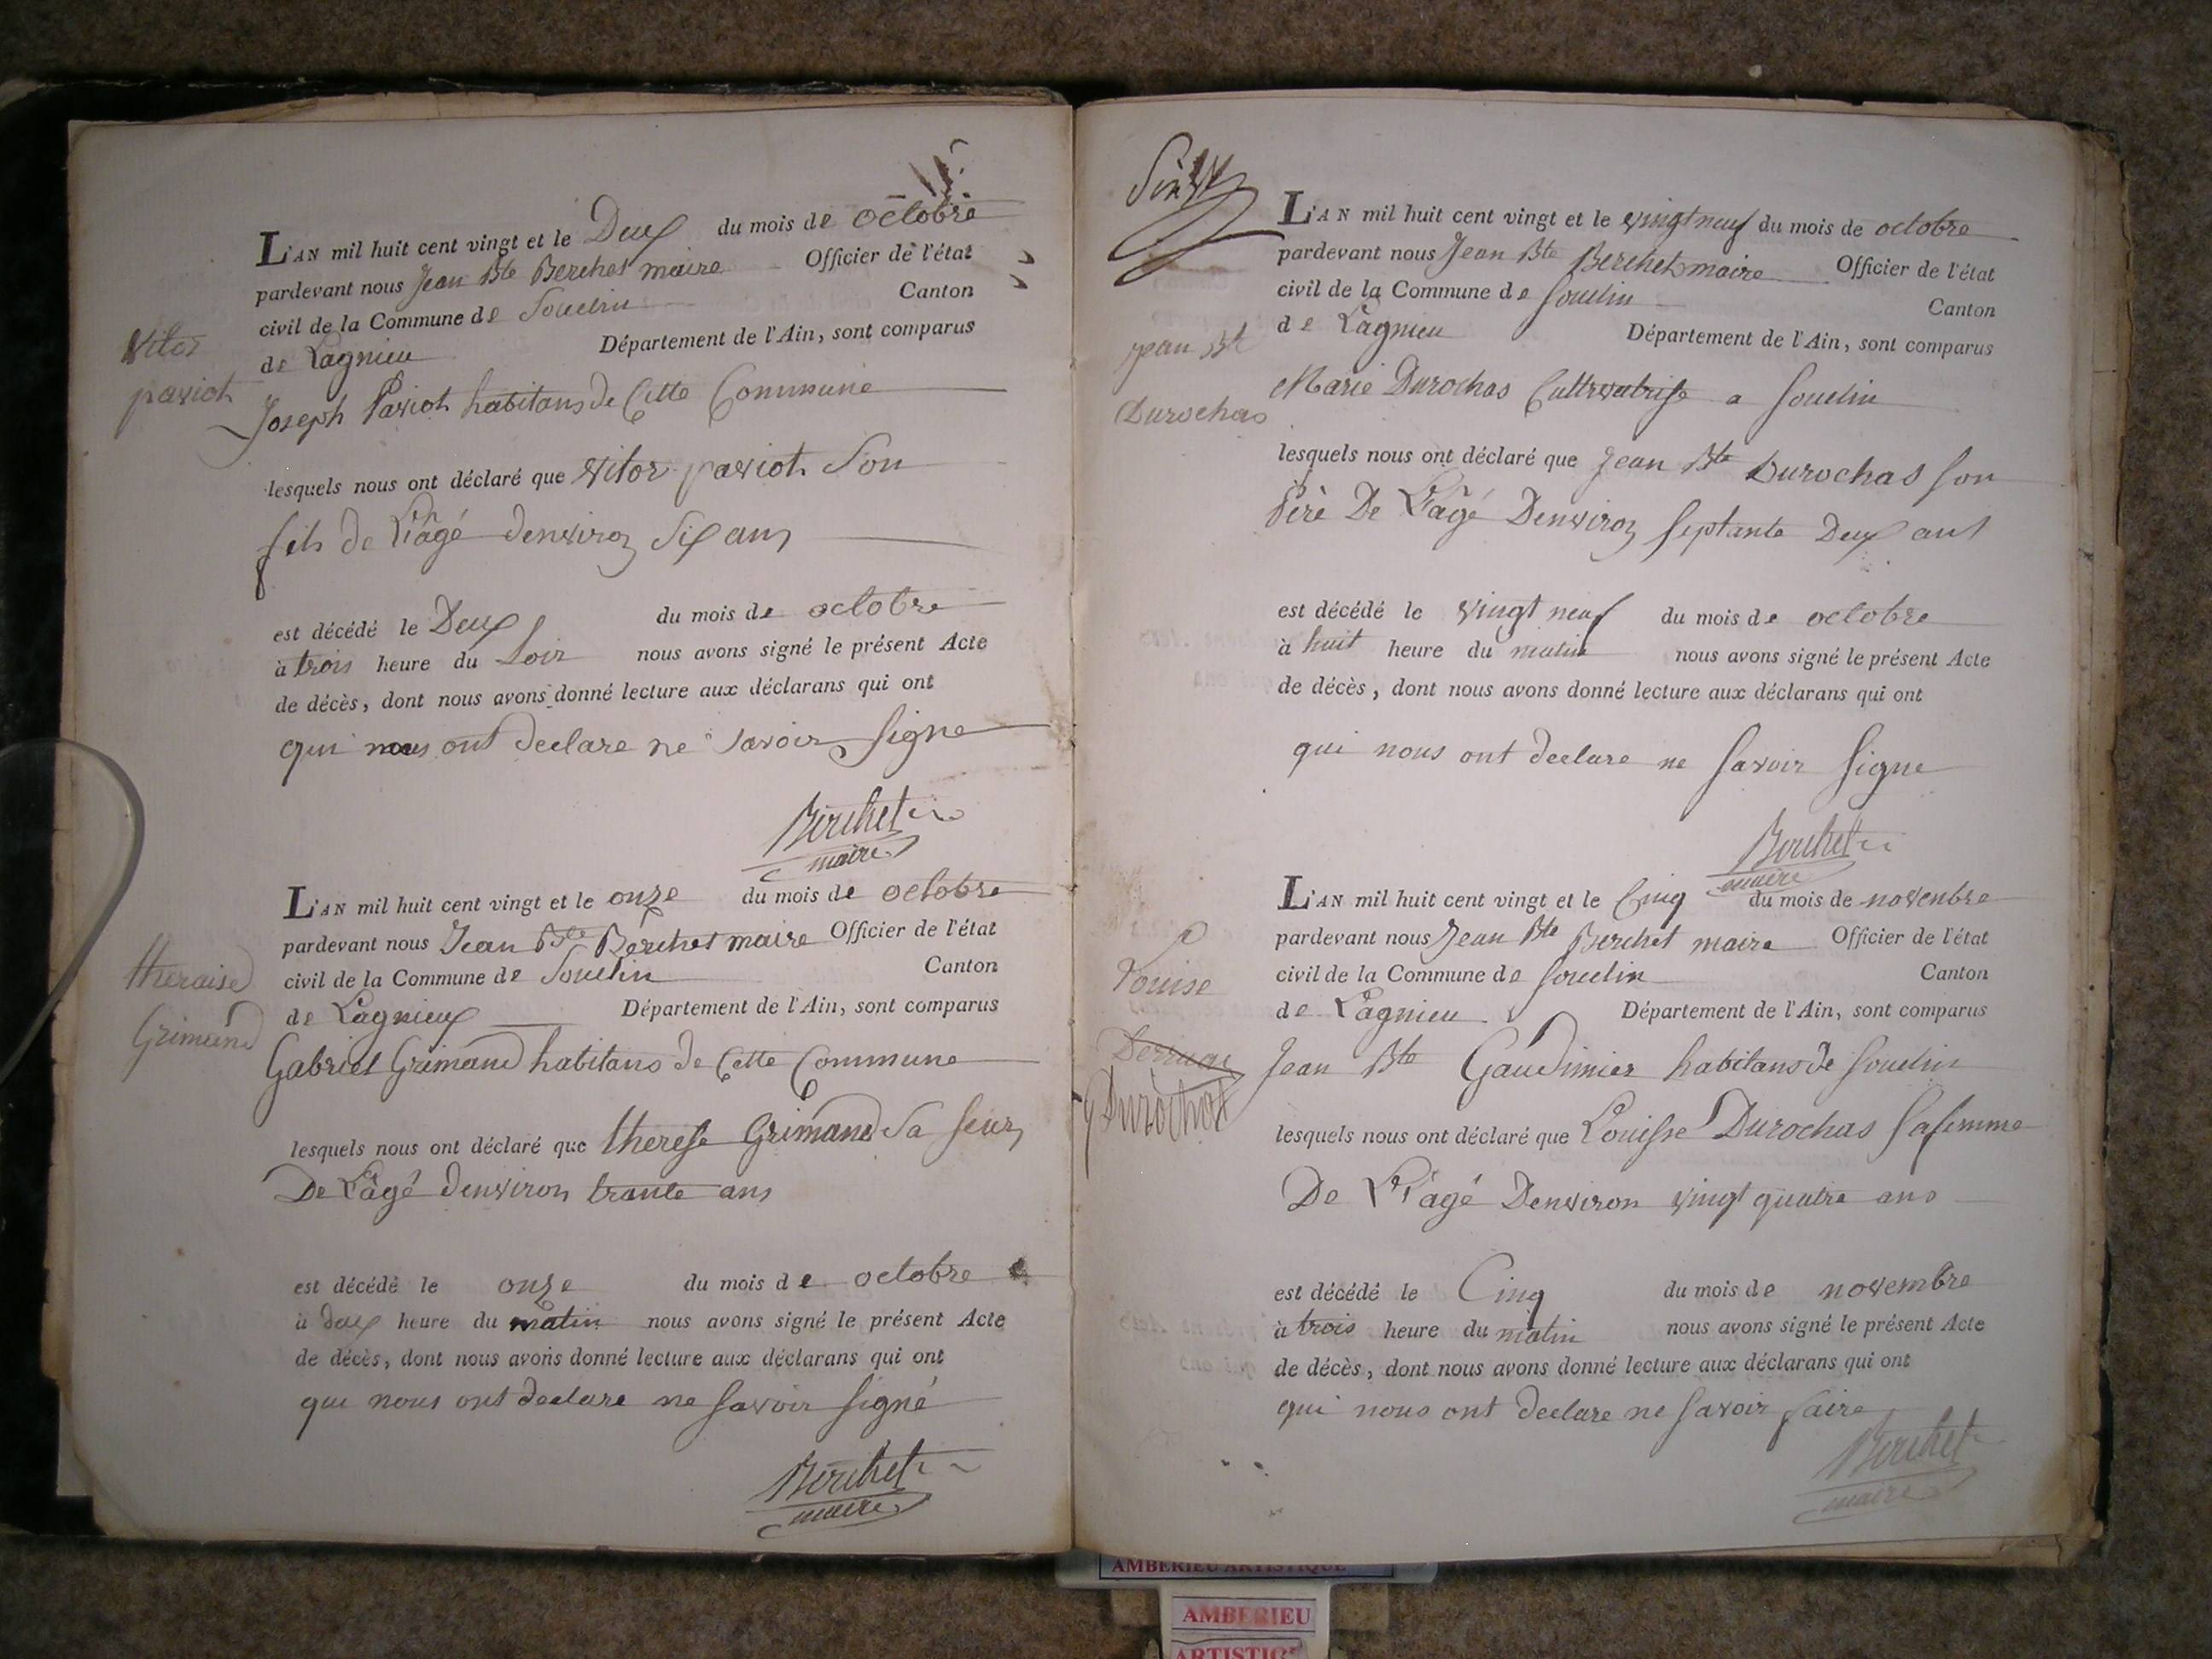 L'AN mil huit cent vingt et le Deux du mois de octobre
pardevant nous Jean Bte Berchet maire Officier de l'état
civil de la Commune de Souclin Canton
de Lagnieu Département de l'Ain, sont comparus
Vitor
paviot
Joseph Paviot habitans de Cette Commune
lesquels nous ont déclaré que vitor paviot Son
fils de L'âgé denviron Six ans
est décédé le Deux du mois de octobre
à trois heure du Soir nous avons signé le présent Acte
de décès, dont nous avons donné lecture aux déclarans qui ont
qui nous ont declare ne Savoir Signe
Berchet
maire
L'AN mil huit cent vingt et le onze du mois de octobre
pardevant nous Jean Bte Berchet maire Officier de l'état
civil de la Commune de Souclin Canton
de Lagnieux Département de l'Ain, sont comparus
theraise
Grimand
Gabriel Grimand habitans de Cette Commune
lesquels nous ont déclaré que therese Grimand Sa Seur
De L'âgé denviron trante ans
est décédé le onze du mois de octobre
à deux heure du matin nous avons signé le présent Acte
de décès, dont nous avons donné lecture aux déclarans qui ont
qui nous ont declare ne Savoir Signé
Berchet
maire
L'AN mil huit cent vingt et le vingt neuf du mois de octobre
pardevant nous Jean Bte Berchet maire Officier de l'état
civil de la Commune de Souclin Canton
de Lagnieu Département de l'Ain, sont comparus
jean Bte
Durochas
Marie Durochas Cultivatrise a Souclin
lesquels nous ont déclaré que Jean Bte Durochas Son
Père De L'âgé Denviron Septante Deux ans
est décédé le vingt neuf du mois de octobre
à huit heure du matin nous avons signé le présent Acte
de décès, dont nous avons donné lecture aux déclarans qui ont
qui nous ont declare ne Savoir Signe
Berchet
maire
L'AN mil huit cent vingt et le Cinq du mois de novenbre
pardevant nous Jean Bte Berchet maire Officier de l'état
civil de la Commune de Souclin Canton
de Lagnieu Département de l'Ain, sont comparus
Louise
Durochat
Jean Bte Gaudimier habitans de Souclin
lesquels nous ont déclaré que Louisse Durochas Sa femme
De L'âgé Denviron vingt quatre ans
est décédé le Cinq du mois de novembre
à trois heure du matin nous avons signé le présent Acte
de décès, dont nous avons donné lecture aux déclarans qui ont
qui nous ont declare ne Savoir faire
Berchet
maire
AMBERIEU ARTISTIQUE
AMBERIEU